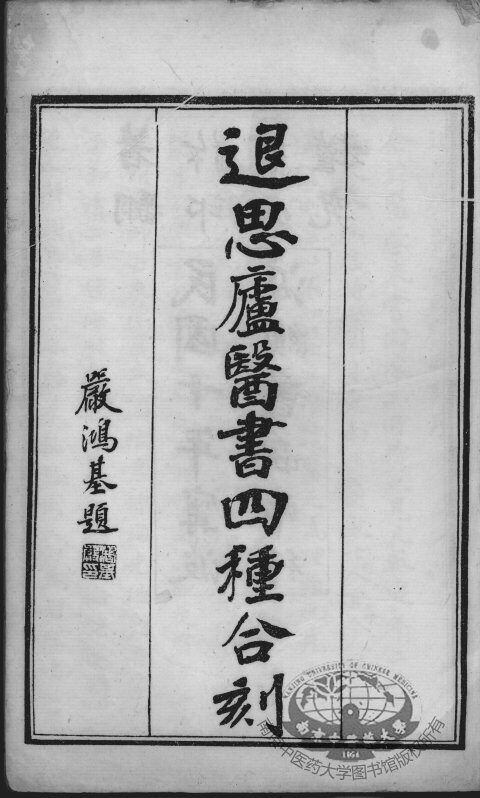 退思廬醫書四種合刻
嚴鴻基題
NANJING UNIVERSITY OF CHINESE MEDICINE
南京中医药大学
1954
南京中医药大学图书馆版权所有